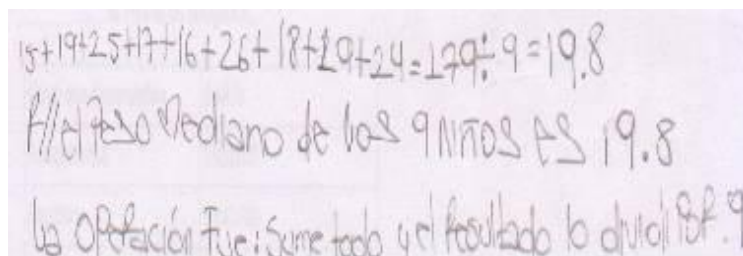 15+19+25+17+16+26+18+19+24=179÷9=19.8
R// el Peso Mediano de los 9 niños es 19.8
La operación fue: Sume todo y el resultado lo dividi por 9